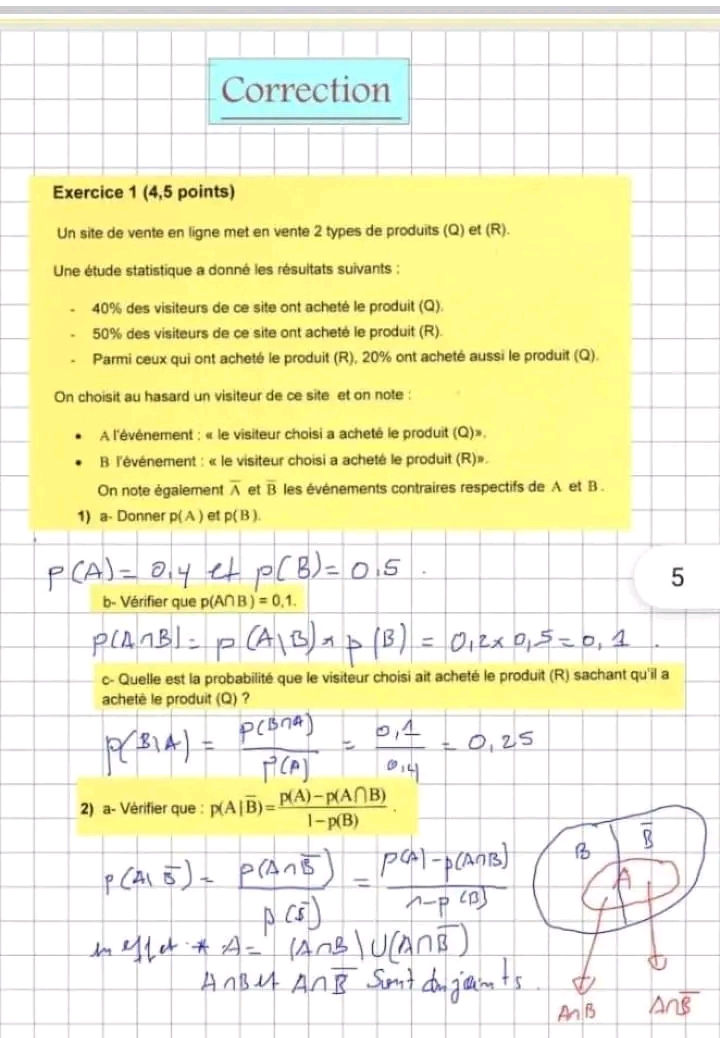 Correction
Exercice 1 (4,5 points)
Un site de vente en ligne met en vente 2 types de produits (Q) et (R).
Une étude statistique a donné les résultats suivants :
- 40% des visiteurs de ce site ont acheté le produit (Q).
- 50% des visiteurs de ce site ont acheté le produit (R).
- Parmi ceux qui ont acheté le produit (R), 20% ont acheté aussi le produit (Q).
On choisit au hasard un visiteur de ce site et on note :
• A l'événement : « le visiteur choisi a acheté le produit (Q)».
• B l'événement : « le visiteur choisi a acheté le produit (R)».
On note également A̅ et B̅ les événements contraires respectifs de A et B.
1) a- Donner p(A) et p(B).
p(A) = 0,4 et p(B) = 0.5.
5
b- Vérifier que p(A∩B) = 0,1.
p(A∩B) = p(A|B) × p(B) = 0,2 × 0,5 = 0,1.
c- Quelle est la probabilité que le visiteur choisi ait acheté le produit (R) sachant qu'il a
acheté le produit (Q) ?
p(B|A) = p(B∩A) / p(A) = 0,1 / 0,4 = 0,25
2) a- Vérifier que : p(A|B̅) = p(A)−p(A∩B) / 1−p(B).
p(A|B̅) = p(A∩B̅) / p(B̅) = p(A)−p(A∩B) / 1−p(B)
B B̅
A
en effet * A = (A∩B) ∪ (A∩B̅)
A∩B et A∩B̅ sont disjoints.
A∩B A∩B̅